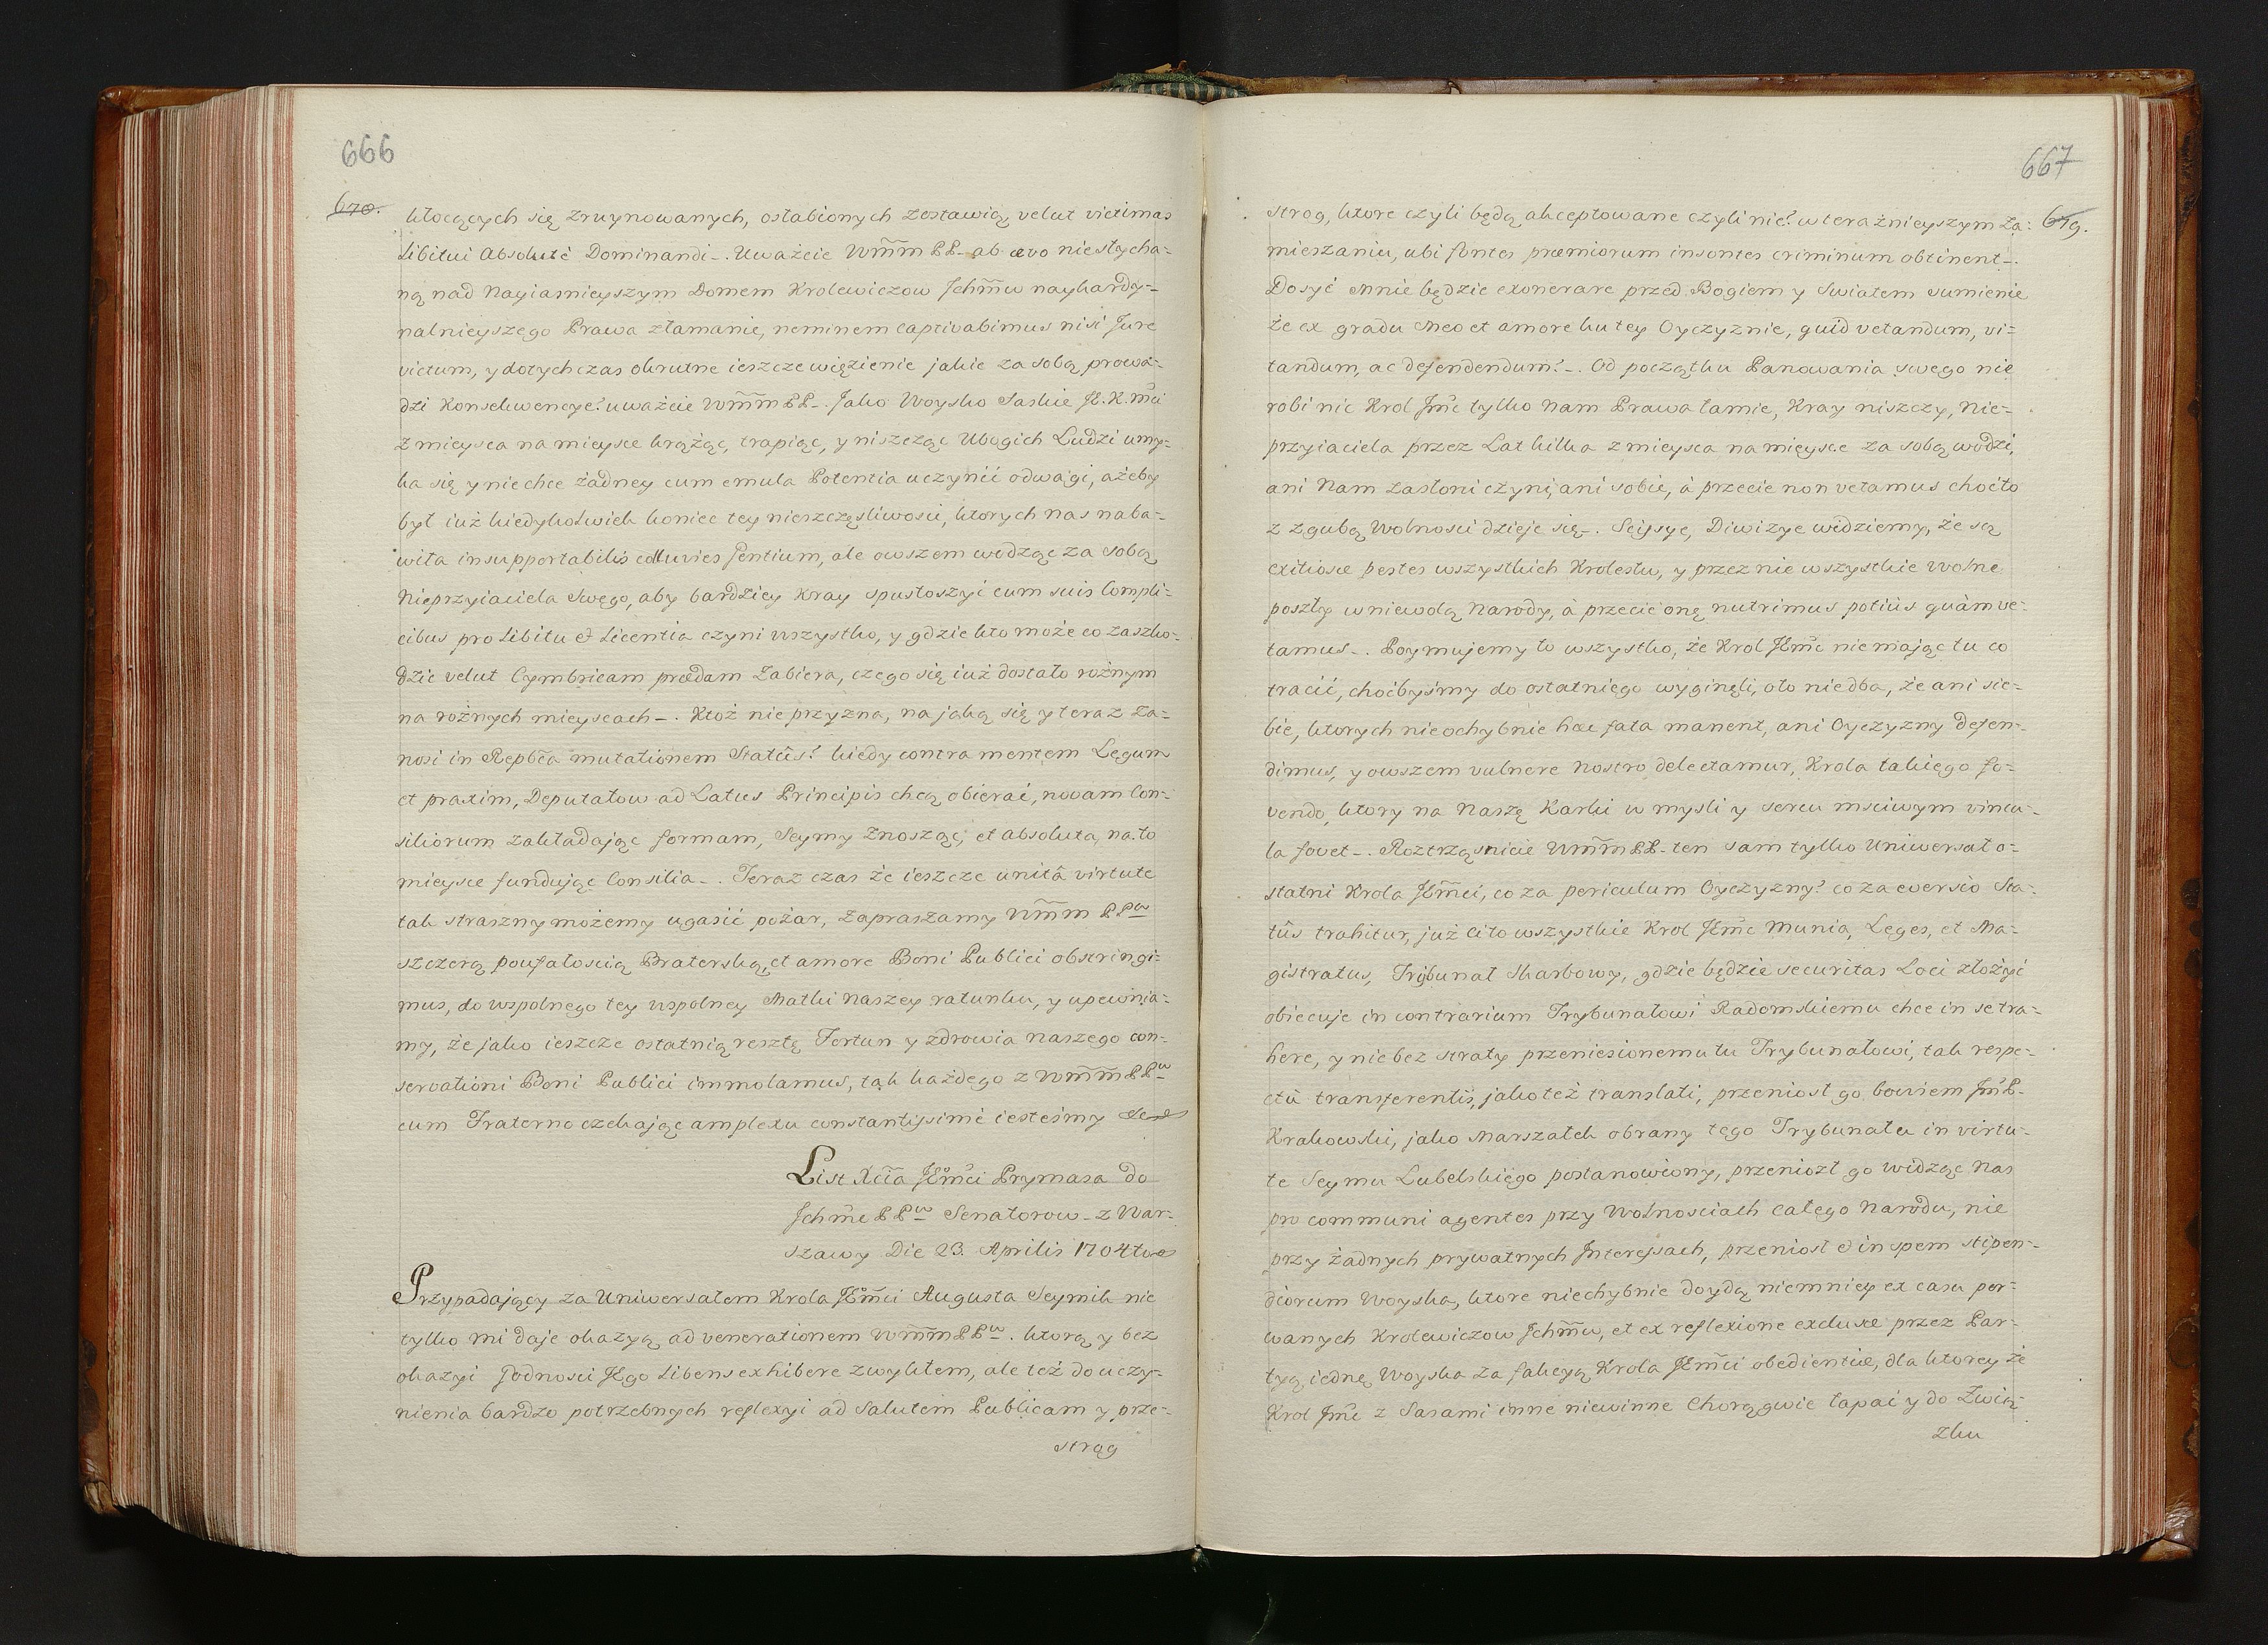 666
670.
kłocących się zruynowanych, osłabionych zostawią velut victimas
Libitui Absoluté Dominandi_. Uważcie Wm̃m PP_ ab ævo niesłycha=
ną nad Nayiasnieyszym Domem Krolewiczow Jchm̃w naykardy=
nalnieyszego Prawa złamanie, neminem captivabimus nisi Jure
victum, y dotychczas okrutne ieszcze więzienie jakie za sobą prowa=
dzi Konsekwencye? uważcie Wm̃m PP_. Jako Woysko Saskie JE.K.mci
z mieysca na mieysce krążąc, trapiąc, y niszcząc Ubogich Ludzi umy=
ka się y nie chce żadney cum emula Potentia uczynić odwagi, ażeby
był iuż kiedykolwiek koniec tey nieszczęsliwosci, ktorych nas naba=
wiła insupportabilis colluvies Gentium, ale owszem wodząc za sobą
Nieprzyiaciela Swego, aby bardziey Kray spustoszyć cum suis Compli=
cibus pro Libitu & Licentia czyni wszystko, y gdzie kto może co zaszko=
dzic velut Cymbricam prædam Zabiera, czego się iuż dostało rożnym
na rożnych mieyscach_. Ktoż nie przyzna, na jaką się y teraz za=
nosi in Repb̃ca mutationem Statûs? kiedy contra mentem Legum
et praxim, Deputatow ad Latus Principis chcą obierać, novam Con=
siliorum zakładając formam, Seymy Znosząc, et absoluta na to
mieysce fundując Consilia_. Teraz czas że ieszcze unitâ virtute
tak straszny możemy ugasić pożar, zapraszamy Wm̃m PPw
szczerą poufałoscią Braterską, et amore Boni Publici obstringi=
mus, do wspolnego tey wspolney Matki Naszey ratunku, y upewnia=
my, że jako ieszcze ostatnią resztę Fortun y zdrowia naszego con=
servationi Boni Publici immolamus, tak każdego z Wm̃m PPw
cum Fraterno czekając amplexu constantissimé iestesmy
List Xcia JEm̃ci Prymasa do
Jchm̃c PPw Senatorow_ z War=
szawy Die 23. Aprilis 1704to
Przypadający za Uniwersałem Krola JEm̃ci Augusta Seymik nie
tylko mi daje okazyą ad venerationem Wm̃m PPw. ktorą y bez
okazyi Godnosci Jego Libens exhibere zwykłem, ale też do uczy=
nienia bardzo potrzebnych reflexyi ad Salutem Publicam y prze=
strąg
667
679.
strog, ktore czyli będą akceptowane czyli nié? w teraźnieyszym Za=
mieszaniu, ubi sontes præmiorum insontes criminum obtinent_.
Dosyć Mnie będzie exonerare przed Bogiem y Swiatem sumienie
że ex gradu Meo et amore ku tey Oyczyznie, quid vetandum, vi=
tandum, ac defendendum?_. Od początku Panowania swego nie
robi nic Krol Jm̃c tylko Nam Prawa łamie, Kray niszczy, Nie=
przyiaciela przez Lat kilka z mieysca na mieysce za sobą wodzi,
ani Nam zasłoni czyni, ani sobie, à przecie non vetamus choć to
z zgubą Wolnosci dzieje się_. Scissye, Diwizye widziemy, że są
exitiosæ pestes wszystkich Krolestw, y przez nie wszystkie wolne
poszły w niewolą Narody, à przecie onę nutrimus potiùs quàm ve=
tamus_. Poymujemy to wszystko, że Krol JEm̃c nie mając tu co
tracić, choćbysmy do ostatniego wyginęli, oto niedba, że ani sie=
bie, ktorych nieochybnie hæc fata manent, ani Oyczyzny defen=
dimus, y owszem vulnere nostro delectamur, Krola takiego fo=
vendo, ktory na Naszę Karki w mysli y sercu msciwym vincu=
la fovet_. Roztrząsnicie Wm̃m PP_ ten sam tylko Uniwersał o=
statni Krola JEm̃ci, co za periculum Oyczyzny? co za eversio Sta=
tûs trahitur, już cito wszystkie Krol JEm̃c Munia, Leges, et Ma=
gistratus, Trybunał Skarbowy, gdzie będzie securitas Loci złożyć
obiecuje in contrarium Trybunałowi Radomskiemu chce in se tra=
here, y nie bez straty przeniesionemu tu Trybunałowi, tak respe=
ctû transferentis, jako też translati, przeniosł go bowiem Jm̃P_
Krakowski, jako Marszałek obrany tego Trybunału in virtu=
te Seymu Lubelskiego postanowiony, przeniozł go widząc Nas
pro communi agentes przy Wolnosciach całego Narodu, nie
przy żadnych prywatnych Interessach, przeniosł & in spem stipen=
diorum Woyska, ktore niechybnie doydą niemniey ex casu por=
wanych Krolewiczow Jchm̃w, et ex reflexione exclusæ przez Par=
tyą iednę Woyska za fakcyą Krola JEm̃ci obedientiæ, dla ktorey że
Krol Jm̃c z Sasami inne niewinne Chorągwie łapać y do Zwią
zku